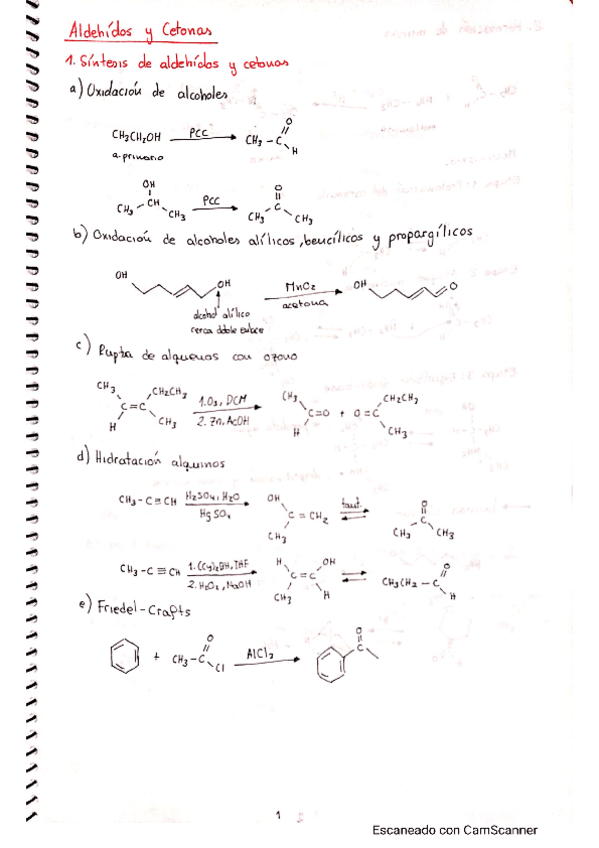 Aldehídos y Cetonas
1. Síntesis de aldehídos y cetonas
a) Oxidación de alcoholes
CH₃CH₂OH PCC CH₃-C O H
a. primario
OH
CH₃-CH-CH₃ PCC CH₃ C O CH₃
b) Oxidación de alcoholes alílicos, bencílicos y propargílicos
OH OH MnO₂ acetona OH O
alcohol alílico
cerca doble enlace
c) Ruptra de alquenos con ozono
CH₃ CH₂CH₃ 1. O₃, DCM CH₃ CH₂CH₃
C=C C=O + O=C
H CH₃ 2. Zn, AcOH H CH₃
d) Hidratación alquinos
CH₃-C≡CH H₂SO₄, H₂O OH C=CH₂ taut. O C
HgSO₄ CH₃ CH₃ CH₃
CH₃-C≡CH 1. (Cy)₂BH, THF H OH C=C CH₃CH₂-C O H
2. H₂O₂, NaOH CH₃ H
e) Friedel-Crafts
+ CH₃-C O Cl AlCl₃ O C
1
Escaneado con CamScanner